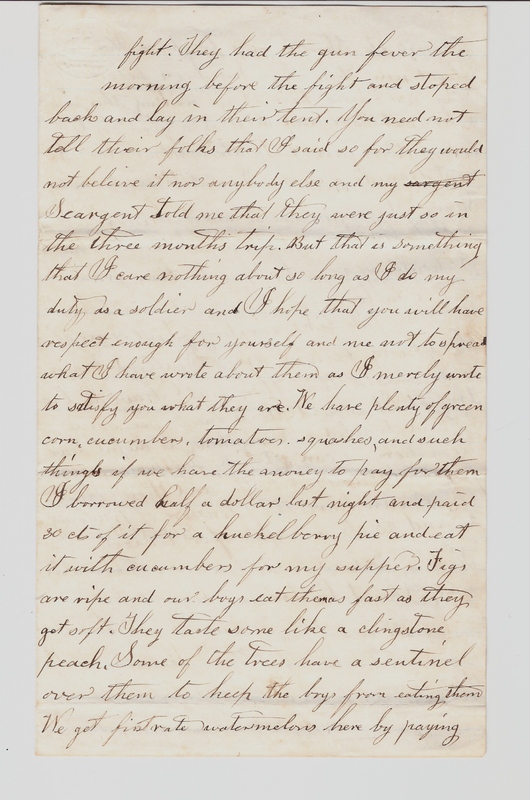 fight. They had the gun fever the
morning before the fight and stoped
back and lay in their tent. You need not
tell their folks that I said so for they would
not beleive it nor anybody else and my sargent
Seargent told me that they were just so in
the three months trip. But that is something
that I care nothing about so long as I do my
duty as a soldier and I hope that you will have
respect enough for yourself and me not to spread
what I have wrote about them as I merely wrote
to satisfy you what they are. We have plenty of green
corn, cucumbers, tomatoes. squashes, and such
things if we have the money to pay for them
I borrowed half a dollar last night and paid
30 cts of it for a huckelberry pie and eat
it with cucumbers for my supper. Figs
are ripe and our boys eat them as fast as they
get soft. They taste some like a clingstone
peach. Some of the trees have a sentinel
over them to keep the boys from eating them
We get first rate watermelons here by paying